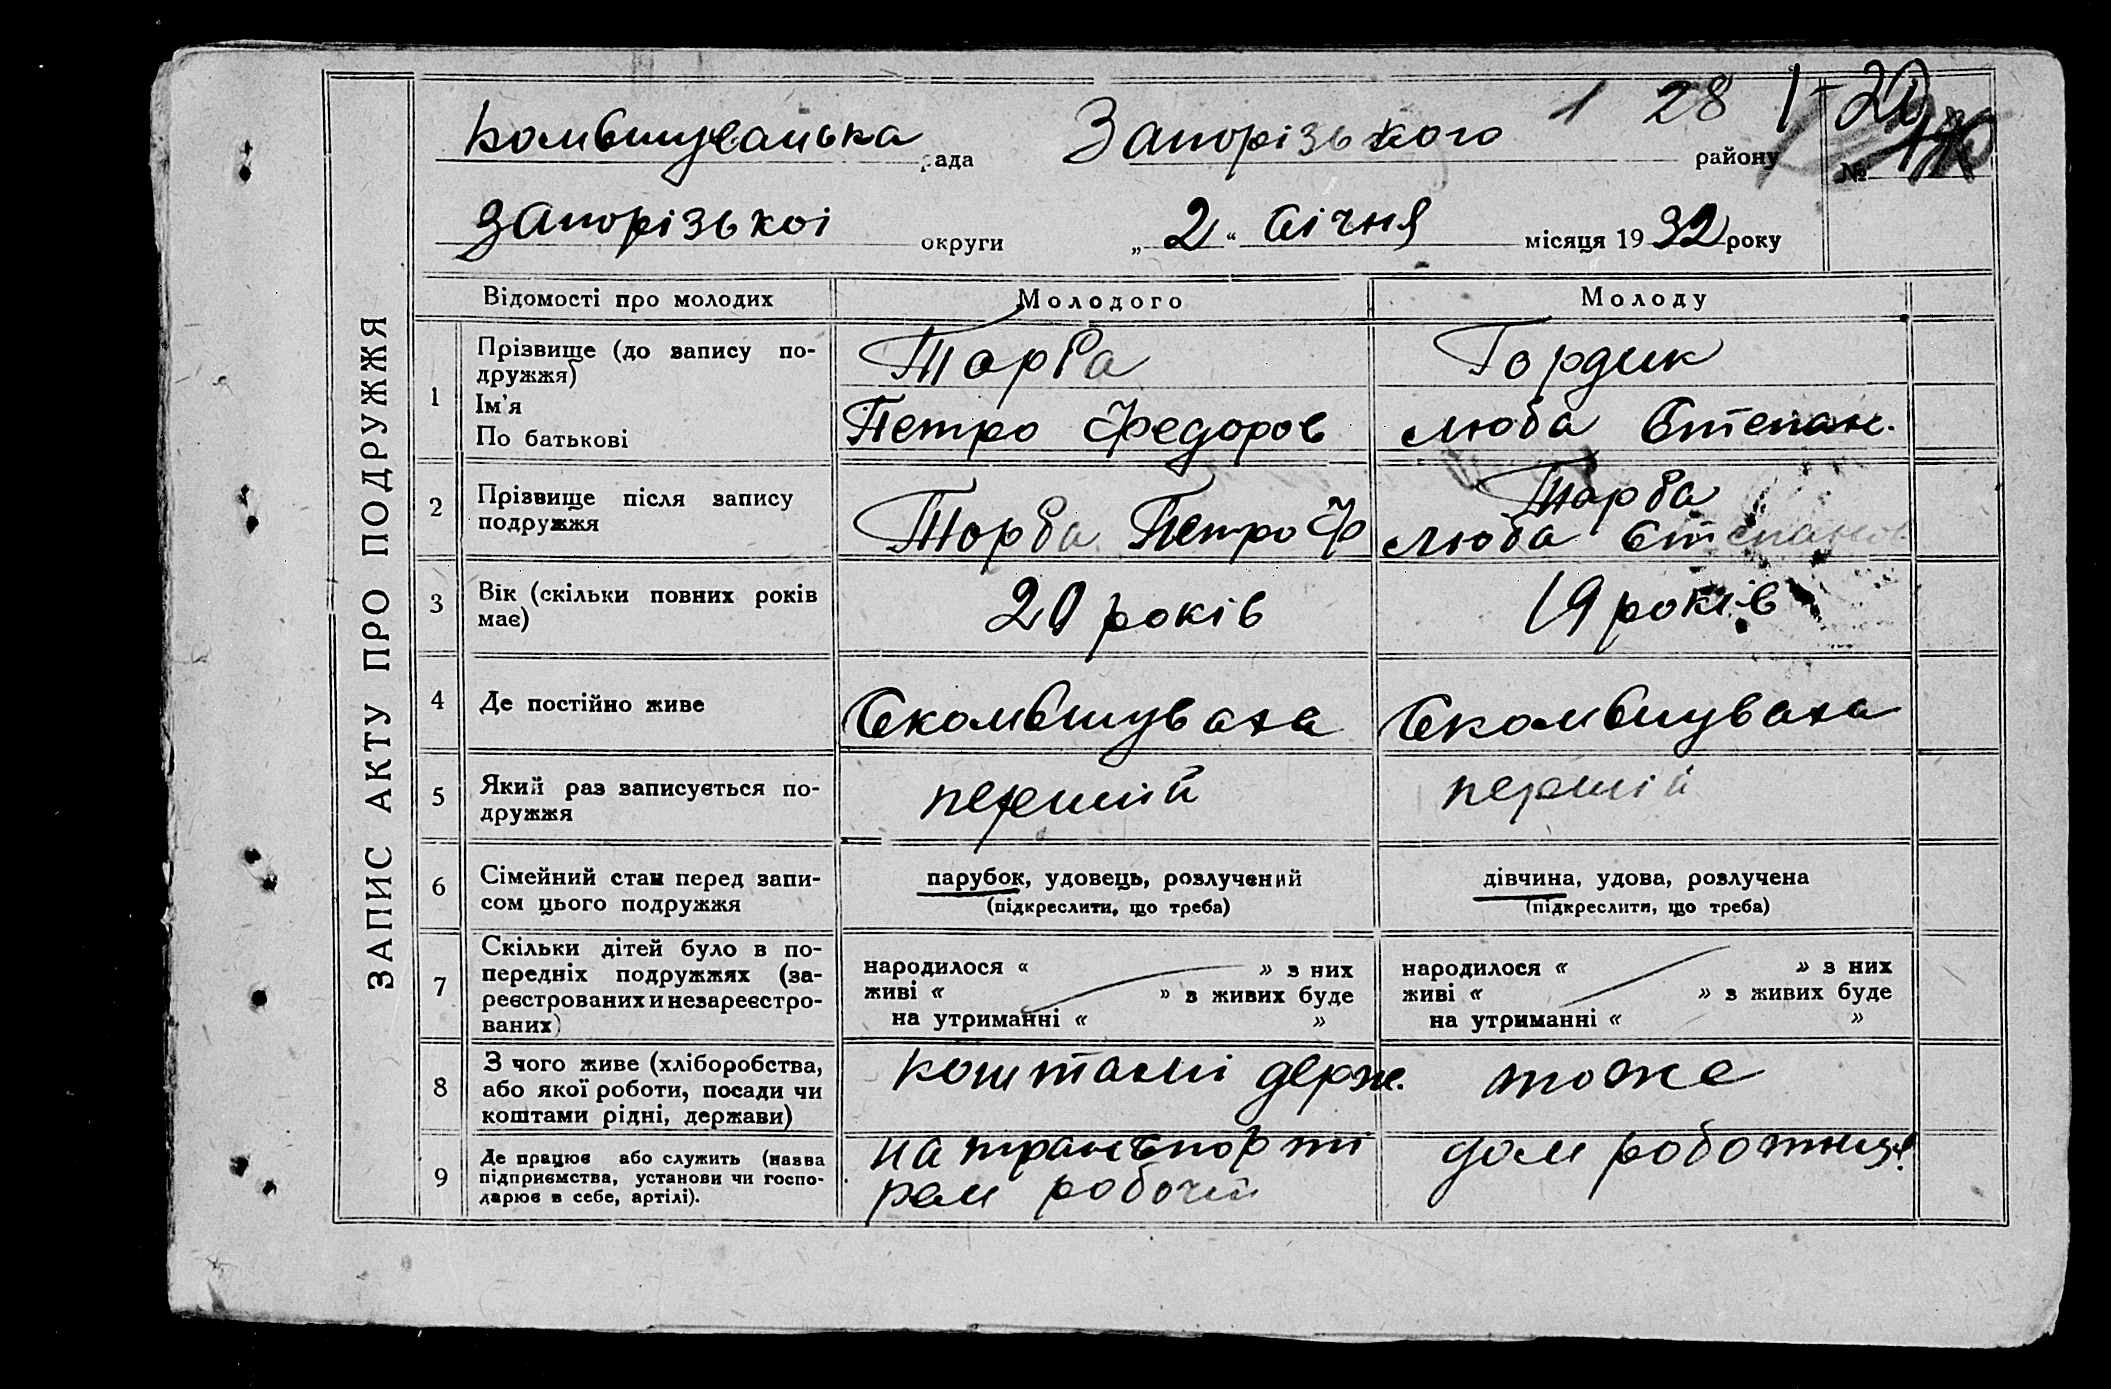 ЗАПИС АКТУ ПРО ПОДРУЖЖЯ
Комбишуваська рада Запорізького району 1 28 1-20
№
Запорізькоі округи „2“ січня місяця 1932 року
Відомості про молодих Молодого Молоду
1 Прізвище (до запису по-
дружжя)
Ім'я
По батькові
Торба
Петро Федоров
Гордик
Люба Степан.
2 Прізвище після запису
подружжя
Торба Петро Ф
Торба
Люба Степанов
3 Вік (скільки повних років
має)
20 років
19 років
4 Де постійно живе
С комбишуваха
С комбишуваха
5 Який раз записується по-
дружжя
першій
першій
6 Сімейний стан перед запи-
сом цього подружжя
парубок, удовець, розлучений
(підкреслити, що треба)
дівчина, удова, розлучена
(підкреслити, що треба)
7 Скільки дітей було в по-
передніх подружжях (за-
реєстрованих и незареєстро-
ваних)
народилося « » з них
живі « » з живих буде
на утриманні « »
народилося « » з них
живі « » з живих буде
на утриманні « »
8 З чого живе (хліборобства,
або якої роботи, посади чи
коштами рідні, держави)
коштами держ.
тоже
9 Де працює або служить (назва
підприємства, установи чи госпо-
дарює в себе, артілі).
на транспорті
рем робочий
дом роботниця